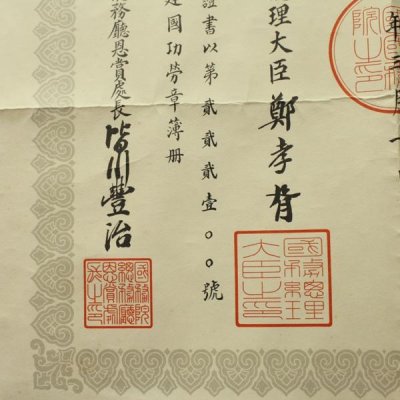 年三月一
院之印
理大臣 鄭孝胥
國務總理大臣之印
證書以第貳貳貳壹〇〇號
建國功勞章簿冊
務廳恩賞處長 皆川豐治
國務院總務廳恩賞處長之印